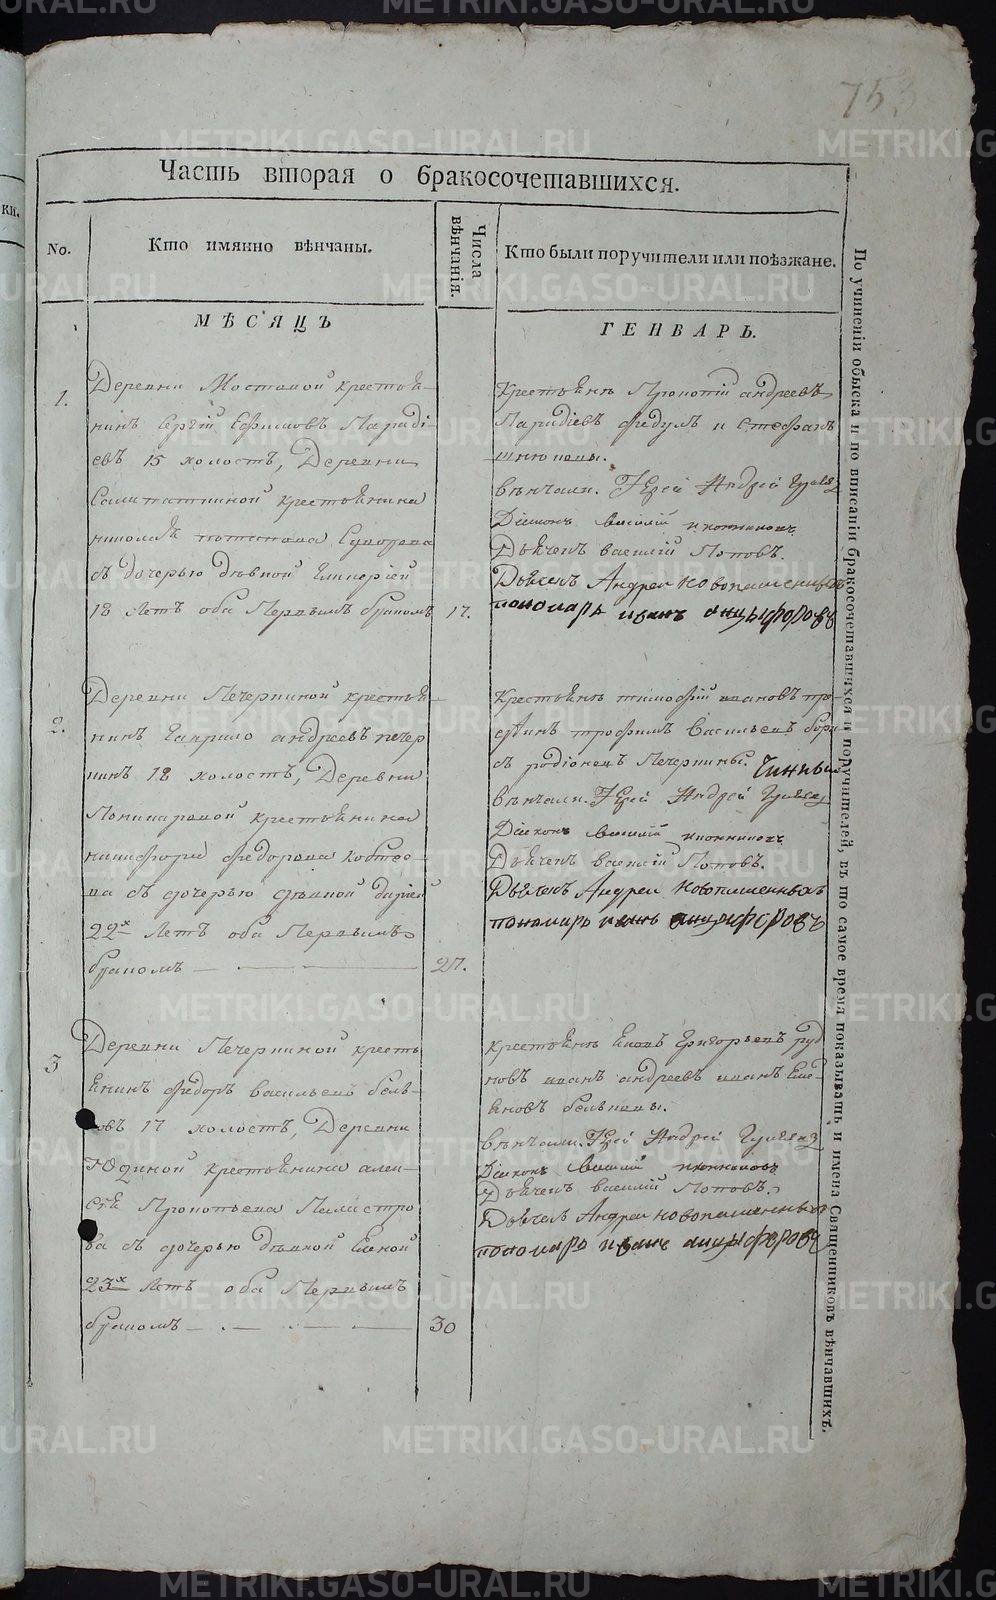 753
Часть вторая о бракосочетавшихся.
No.
Кто имянно вѣнчаны.
Числа вѣнчанія.
Кто были поручители или поѣзжане.
МѢСЯЦЪ
ГЕНВАРЬ.
1.
Деревни Мостовой крестья-
нинъ Сергій Ефимовъ
евъ 15 холостъ, Деревни
крестьянина
съ дочерью дѣвкой
18 летъ оба первымъ бракомъ
17.
Крестьянъ Прокопій андреевъ
Федулъ и Стефанъ
вѣнчали. Іерей Андрей
Діаконъ Василій иконниковъ
Дьячекъ василій Поповъ.
Дьячекъ Андреи новопашенныхъ
пономарь иванъ анцыферовъ
2.
Деревни Печеркиной крестья-
нинъ Гаврило андреевъ печер
кинъ 18 холостъ, Деревни
крестьянина
никифора федорова
ва съ дочерью дѣвкой дарьей
22х летъ оба Первымъ
бракомъ
27.
Крестьянъ тимофей ивановъ
трофимъ Васильевъ
съ родіоновъ Печеркины.
вѣнчали. Іерей Андрей
Діаконъ Василій иконниковъ
Дьячекъ василій Поповъ.
Дьячекъ Андреи Новопашенныхъ
пономарь иванъ анцыферовъ
3
Деревни Печеркиной кресть
янинъ федоръ васильевъ бель-
ковъ 17 холостъ, Деревни
Юдиной крестьянина алек-
сѣя Прокопьева
ва съ дочерью дѣвкой Еленой
23х летъ оба Первымъ
бракомъ
30
крестьянъ Яковъ Григорьевъ руд
ковъ иванъ андреевъ иванъ Еме-
яновъ бельковы.
вѣнчали. Іерей Андрей
Діаконъ Василій иконниковъ
Дьячекъ василій Поповъ.
Дьячекъ Андреи новопашенныхъ
пономарь иванъ анцыферовъ
По учиненіи обыска и по вписаніи бракосочетавшихся и поручителей, въ то самое время показывать и имена Священниковъ вѣнчавшихъ.
METRIKI.GASO-URAL.RU